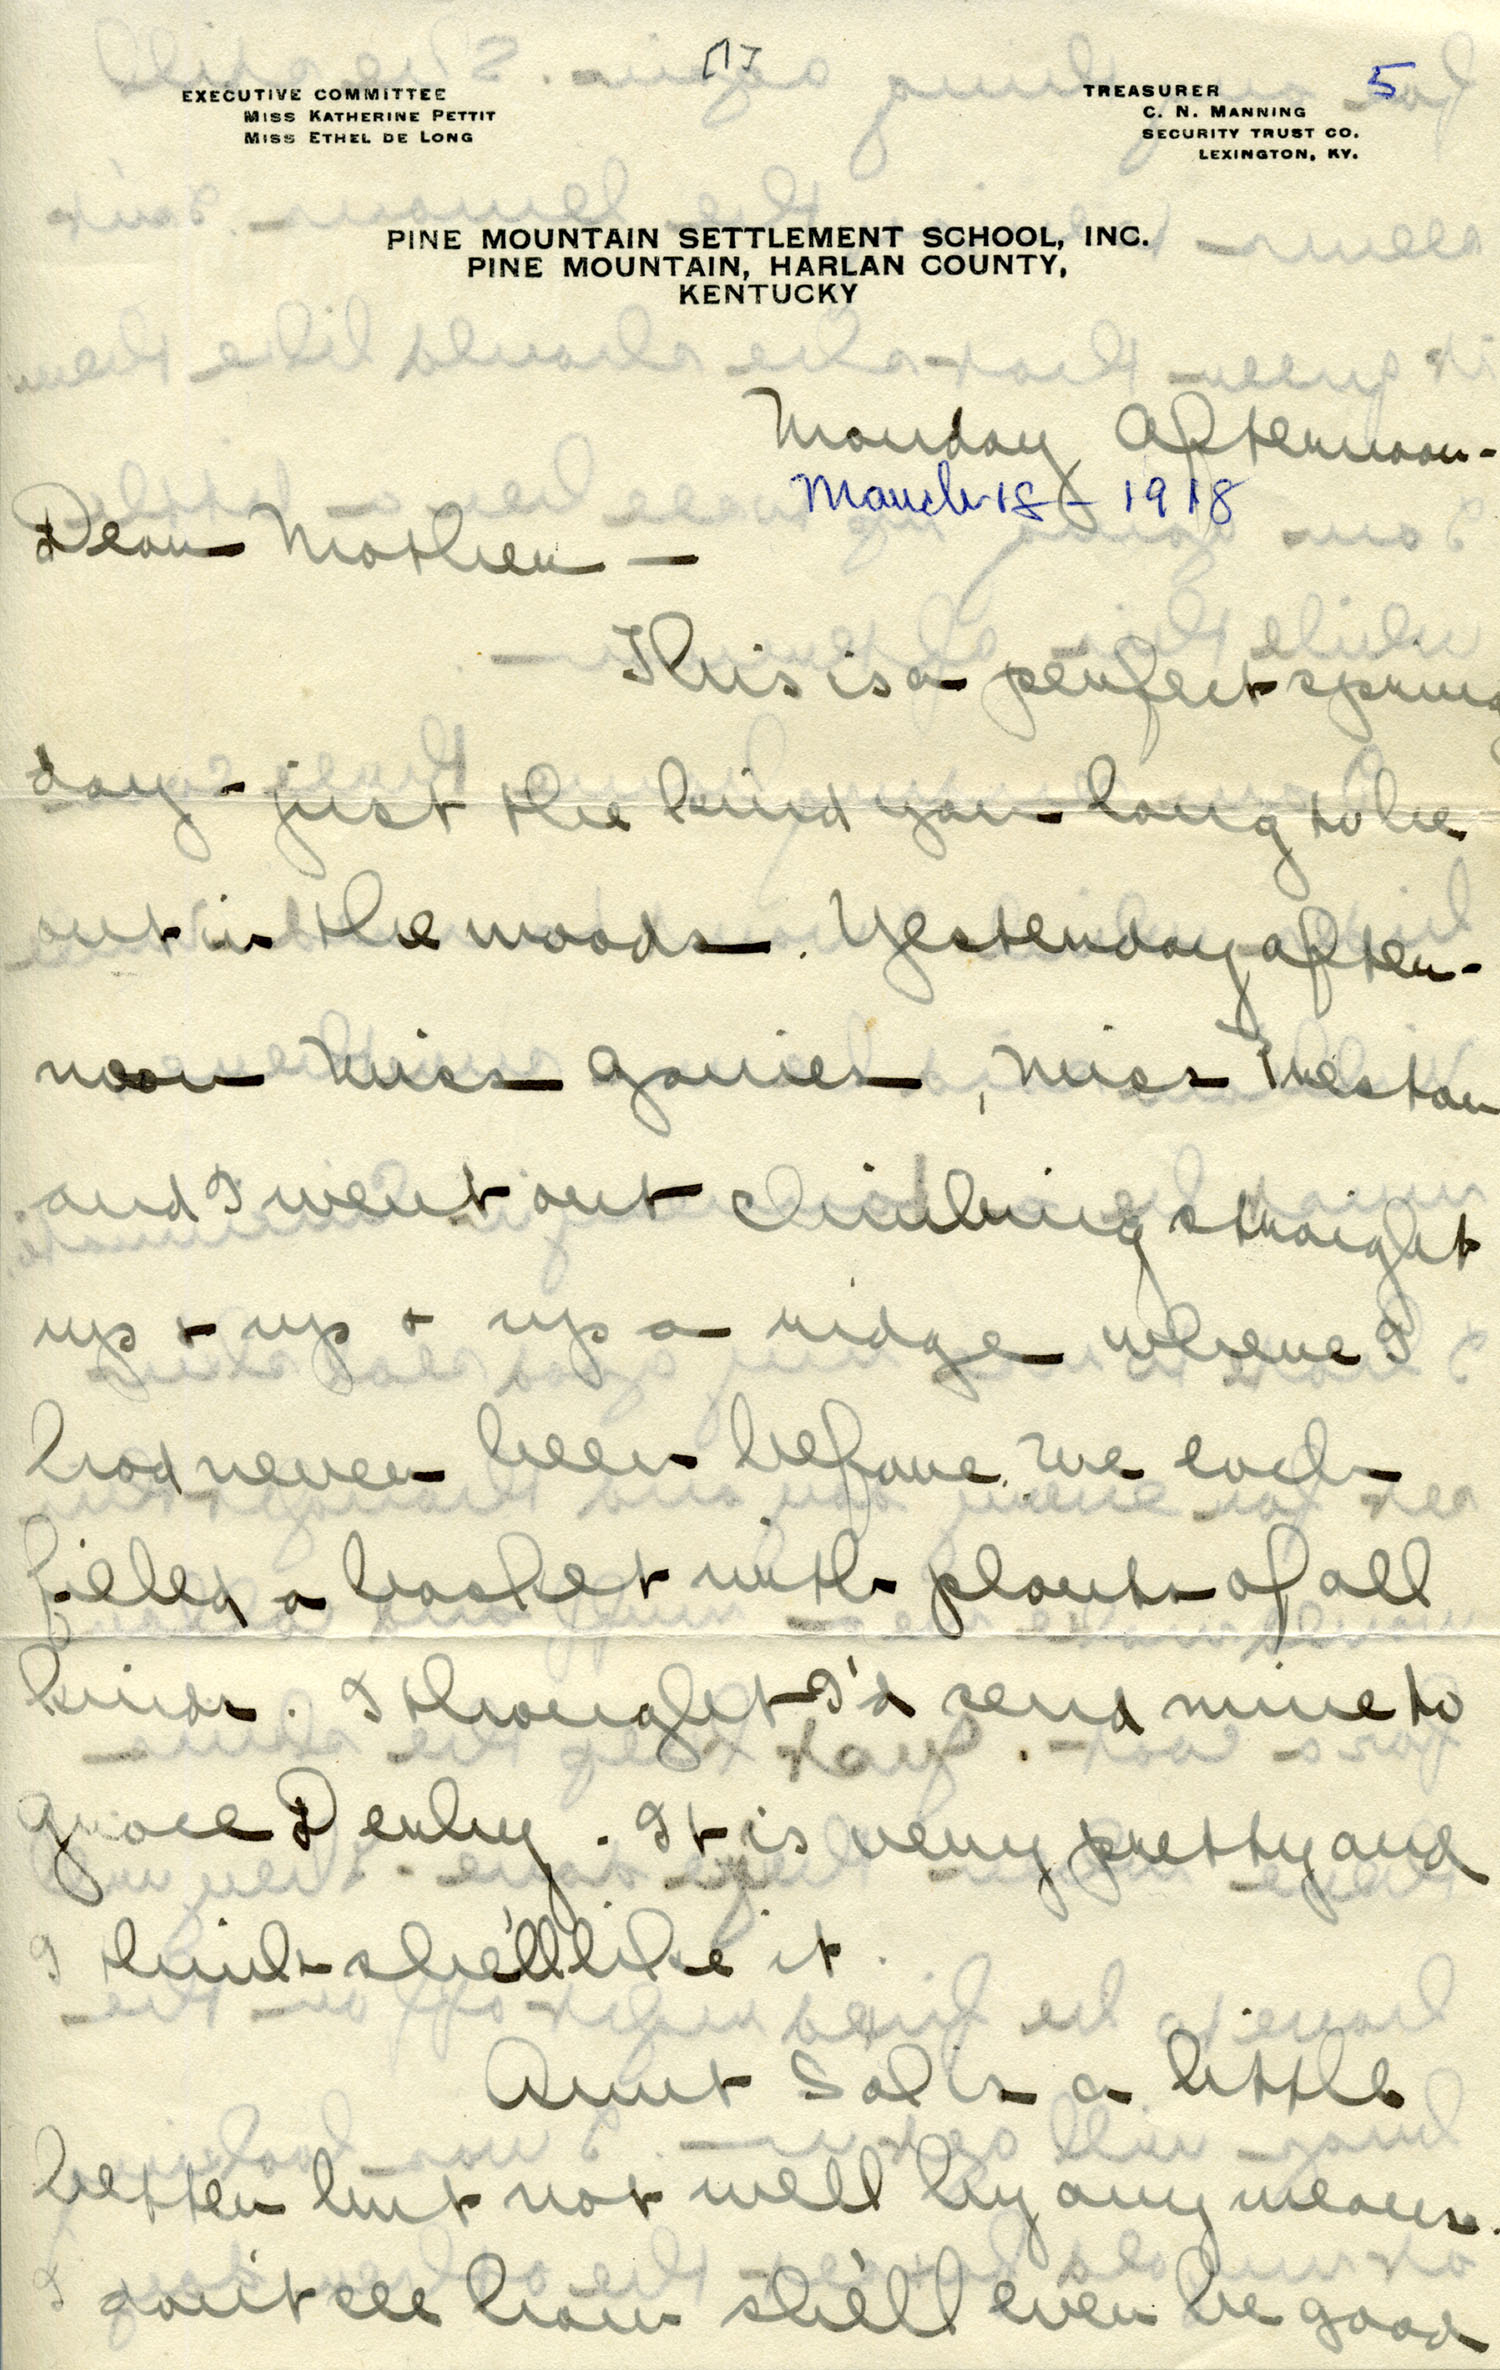 EXECUTIVE COMMITTEE
MISS KATHERINE PETTIT
MISS ETHEL DE LONG
TREASURER
C. N. MANNING
SECURITY TRUST CO.
LEXINGTON, KY.
5
PINE MOUNTAIN SETTLEMENT SCHOOL, INC.
PINE MOUNTAIN, HARLAN COUNTY,
KENTUCKY
Monday Afternoon-
March 18 - 1918
Dear Mother -
This is a perfect spring
day - just the kind you long to be
out in the woods. Yesterday after-
noon Miss Gaines, Miss
and I went out climbing straight
up + up + up a ridge where I
had never been before. We each
filled a basket with plants of all
kinds. I thought I'd send mine to
Grace Derby. It is very pretty and
I think she'll like it.
Aunt Sal is a little
better but not well by any means.
I don't see how she'll ever be good